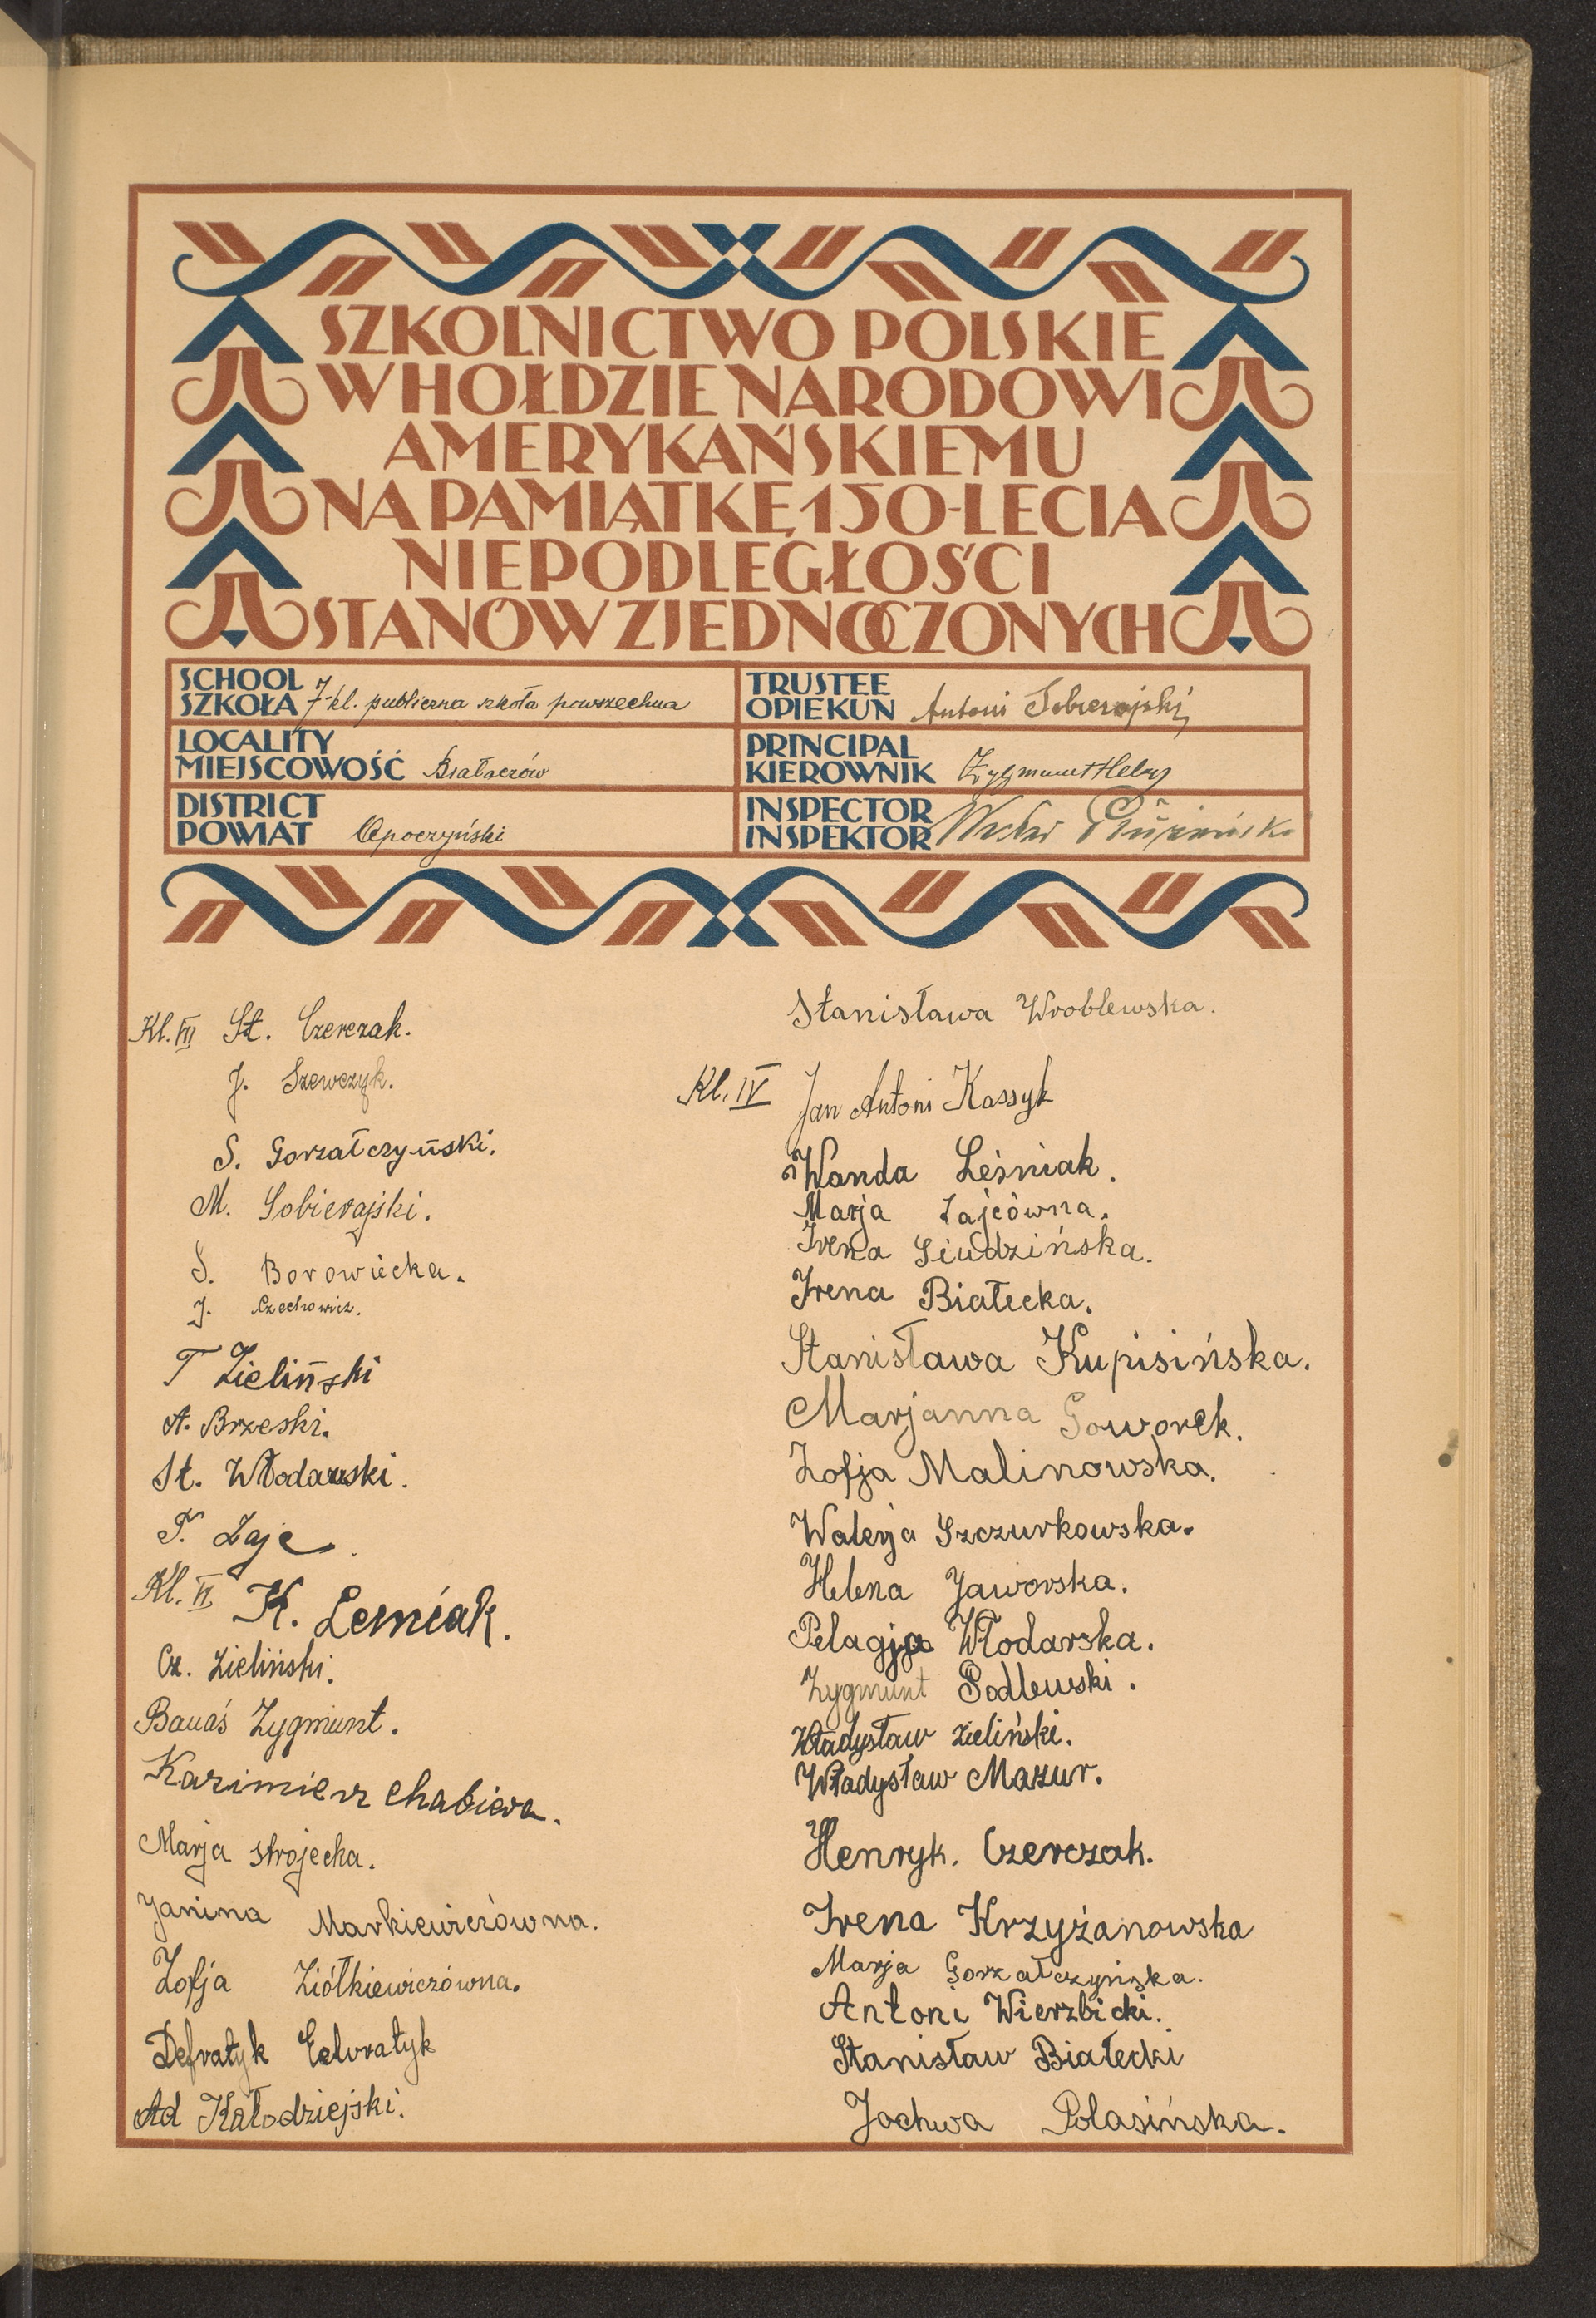 SZKOLNICTWO POLSKIE
W HOŁDZIE NARODOWI
AMERYKAŃSKIEMU
NA PAMIĄTKĘ 150-LECIA
NIEPODLEGŁOŚCI
STANÓW ZJEDNOCZONYCH
SCHOOL
SZKOŁA 7-kl. publiczna szkoła powszechna
LOCALITY
MIEJSCOWOŚĆ Białaczów
DISTRICT
POWIAT Opoczyński
TRUSTEE
OPIEKUN Antoni Sobierajski
PRINCIPAL
KIEROWNIK Zygmunt
INSPECTOR
INSPEKTOR
Kl. VII St. Czerczak.
J. Szewczyk.
S. Gorzałczyński.
M. Sobierajski.
S. Borowiecka.
J. Czechowicz.
T Zieliński
A. Brzeski.
St. Włodarski.
T. Zając.
Kl. VI K. Leśniak.
Cz. Zieliński.
Banaś Zygmunt.
Kazimierz Chabiera.
Marja Strojecka.
Janina Markiewiczówna.
Zofja Ziółkiewiczówna.
Defratyk
Ad Kałodziejski.
Stanisława Wroblewska.
Kl. IV Jan Antoni Kassyk
Wanda Leśniak.
Marja Zajcówna.
Irena Siudzińska.
Irena Białecka.
Stanisława Kupisińska.
Marjanna Goworek.
Zofja Malinowska.
Walerja Szczurkowska.
Helena Jaworska.
Pelagja Włodarska.
Zygmunt Podlewski.
Władysław Zieliński.
Władysław Mazur.
Henryk. Czerczak.
Irena Krzyżanowska
Marja Gorzałczyńska.
Antoni Wierzbicki.
Stanisław Białecki
Jochwa Polasińska.